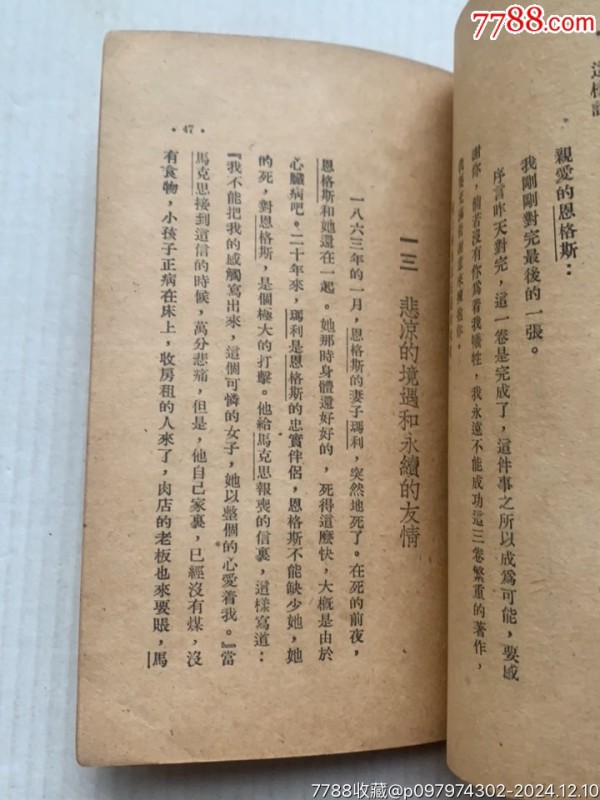 7788.com
親愛的恩格斯：
我剛剛對完最後的一張。
序言昨天對完，這一卷是完成了，這件事之所以成爲可能，要感
謝你，倘若沒有你爲着我犧牲，我永遠不能成功這三卷繁重的著作，
一三 悲涼的境遇和永續的友情
一八六三年的一月，恩格斯的妻子瑪利，突然地死了。在死的前夜，
恩格斯和她還在一起。她那時身體還好好的，死得這麼快，大概是由於
心臟病吧。二十年來，瑪利是恩格斯的忠實伴侶，恩格斯不能缺少她，她
的死，對恩格斯，是個極大的打擊。他給馬克思報喪的信裏，這樣寫道：
『我不能把我的感觸寫出來，這個可憐的女子，她以整個的心愛着我。』當
馬克思接到這信的時候，萬分悲痛，但是，他自己家裏，已經沒有煤，沒
有食物，小孩子正病在床上，收房租的人來了，肉店的老板也來要賬，馬
• 47 •
7788收藏@p097974302-2024.12.10